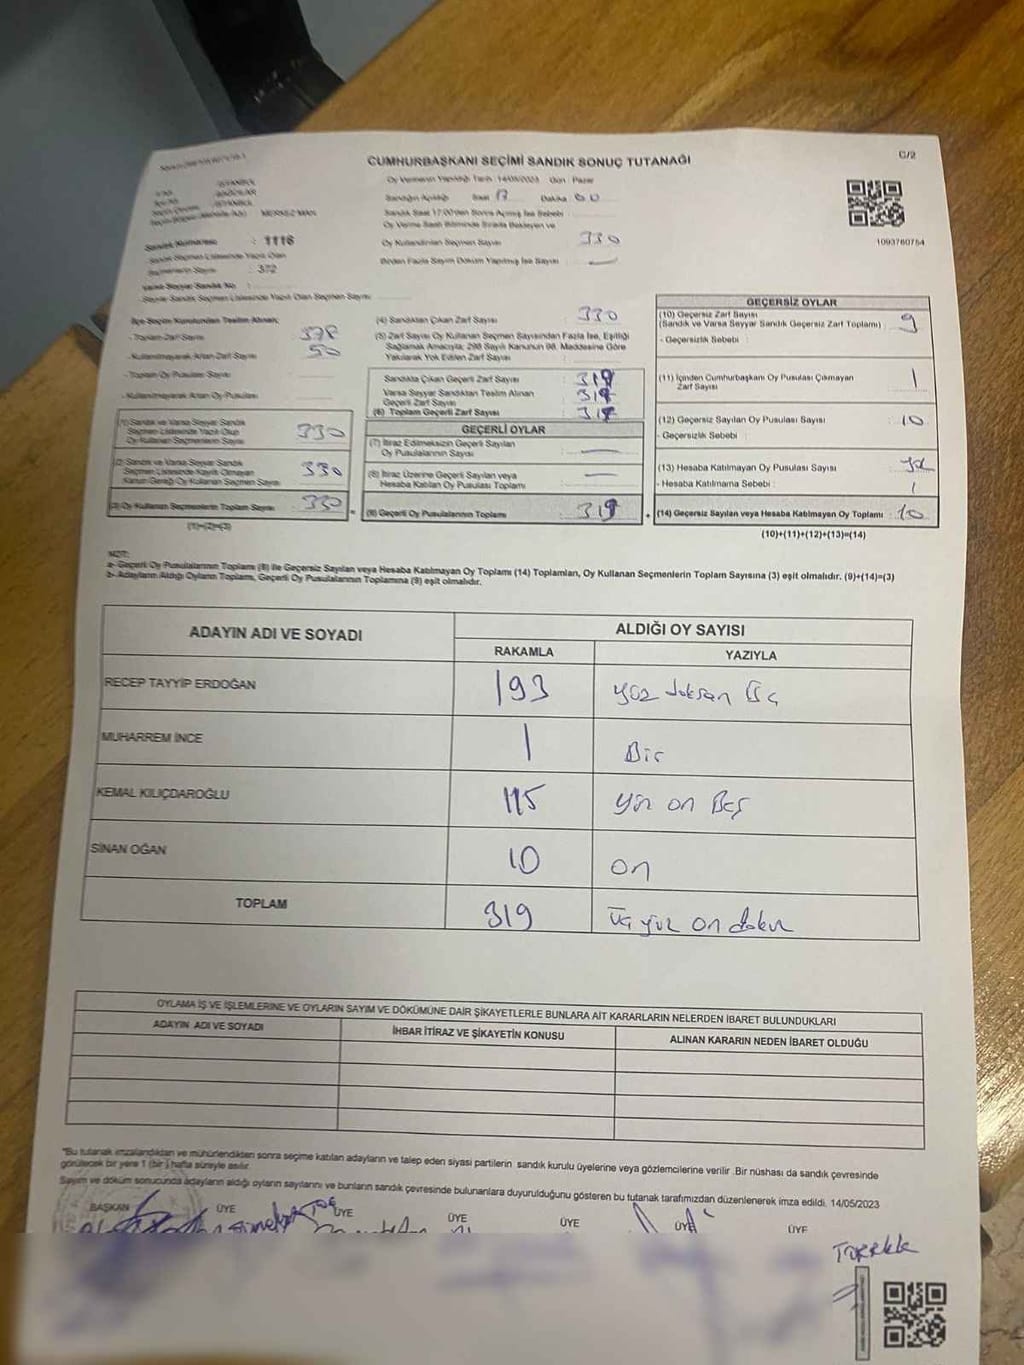 CUMHURBAŞKANI SEÇİMİ SANDIK SONUÇ TUTANAĞI
C/2
Oy Vermenin Yapıldığı Tarih :14/05/2023 Gün : Pazar
Sandığın Açıldığı Saat 17 Dakika
Sandık Saat 17:00'den Sonra Açılmış İse Sebebi
Oy Verme Saati Bitiminde Sırada Bekleyen ve
Oy Kullandırılan Seçmen Sayısı 330
Birden Fazla Sayım Döküm Yapılmış İse Sayısı —
1093760754
Sandık Numarası : 1116
Sandık Seçmen Listesinde Yazılı Olan
Seçmenlerin Sayısı : 372
İlçe Seçim Kurulundan Teslim Alınan;
- Toplam Zarf Sayısı 378
- Kullanılmayarak Artan Zarf Sayısı 50
- Toplam Oy Pusulası Sayısı
- Kullanılmayarak Artan Oy Pusulası
(1) Sandık ve Varsa Seyyar Sandık
Seçmen Listesinde Yazılı Olup
Oy Kullanan Seçmenlerin Sayısı 330
(2) Sandık ve Varsa Seyyar Sandık
Seçmen Listesinde Kayıtlı Olmayan
Kanun Gereği Oy Kullanan Seçmen Sayısı 330
(3) Oy Kullanan Seçmenlerin Toplam Sayısı 330
(1)+(2)=(3)
(4) Sandıktan Çıkan Zarf Sayısı 330
(5) Zarf Sayısı Oy Kullanan Seçmen Sayısından Fazla İse, Eşitliği
Sağlamak Amacıyla; 298 Sayılı Kanunun 98. Maddesine Göre
Yakılarak Yok Edilen Zarf Sayısı :
Sandıkta Çıkan Geçerli Zarf Sayısı : 319
Varsa Seyyar Sandıktan Teslim Alınan
Geçerli Zarf Sayısı : 319
(6) Toplam Geçerli Zarf Sayısı : 319
GEÇERLİ OYLAR
(7) İtiraz Edilmeksizin Geçerli Sayılan
Oy Pusulalarının Sayısı : —
(8) İtiraz Üzerine Geçerli Sayılan veya
Hesaba Katılan Oy Pusulaları Toplamı : —
(9) Geçerli Oy Pusulalarının Toplamı : 319
GEÇERSİZ OYLAR
(10) Geçersiz Zarf Sayısı
(Sandık ve Varsa Seyyar Sandık Geçersiz Zarf Toplamı) : 9
- Geçersizlik Sebebi :
(11) İçinden Cumhurbaşkanı Oy Pusulası Çıkmayan
Zarf Sayısı : 1
(12) Geçersiz Sayılan Oy Pusulası Sayısı : 10
- Geçersizlik Sebebi :
(13) Hesaba Katılmayan Oy Pusulası Sayısı :
- Hesaba Katılmama Sebebi : 1
(14) Geçersiz Sayılan veya Hesaba Katılmayan Oy Toplamı : 10
(10)+(11)+(12)+(13)=(14)
NOT:
a- Geçerli Oy Pusulalarının Toplamı (9) ile Geçersiz Sayılan veya Hesaba Katılmayan Oy Toplamı (14) Toplamları, Oy Kullanan Seçmenlerin Toplam Sayısına (3) eşit olmalıdır. (9)+(14)=(3)
b- Adayların Aldığı Oyların Toplamı, Geçerli Oy Pusulalarının Toplamına (9) eşit olmalıdır.
ADAYIN ADI VE SOYADI
ALDIĞI OY SAYISI
RAKAMLA YAZIYLA
RECEP TAYYİP ERDOĞAN 193 yüz doksan üç
MUHARREM İNCE 1 Bir
KEMAL KILIÇDAROĞLU 115 yüz on Beş
SİNAN OĞAN 10 on
TOPLAM 319 üç yüz on dokuz
OYLAMA İŞ VE İŞLEMLERİNE VE OYLARIN SAYIM VE DÖKÜMÜNE DAİR ŞİKAYETLERLE BUNLARA AİT KARARLARIN NELERDEN İBARET BULUNDUKLARI
ADAYIN ADI VE SOYADI İHBAR İTİRAZ VE ŞİKAYETİN KONUSU ALINAN KARARIN NEDEN İBARET OLDUĞU
"Bu tutanak imzalandıktan ve mühürlendikten sonra seçime katılan adayların ve talep eden siyasi partilerin sandık kurulu üyelerine veya gözlemcilerine verilir .Bir nüshası da sandık çevresinde
görülecek bir yere 1 (bir ) hafta süreyle asılır.
Sayım ve döküm sonucunda adayların aldığı oyların sayılarını ve bunların sandık çevresinde bulunanlara duyurulduğunu gösteren bu tutanak tarafımızdan düzenlenerek imza edildi. 14/05/2023
BAŞKAN ÜYE ÜYE ÜYE ÜYE ÜYE ÜYE